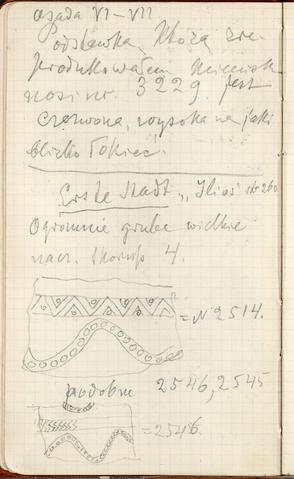 osada VI–VII
podstawka, którą zre-
produkowałem
nosi nr. 3229. jest
czerwona, wysoka na jaki
blizko łokieć.
Erste Stadt „Ilias" str 260
Ogromnie grube wielkie
nacz. skorup 4.
= N 2514.
podobne 2546, 2545
= 2546